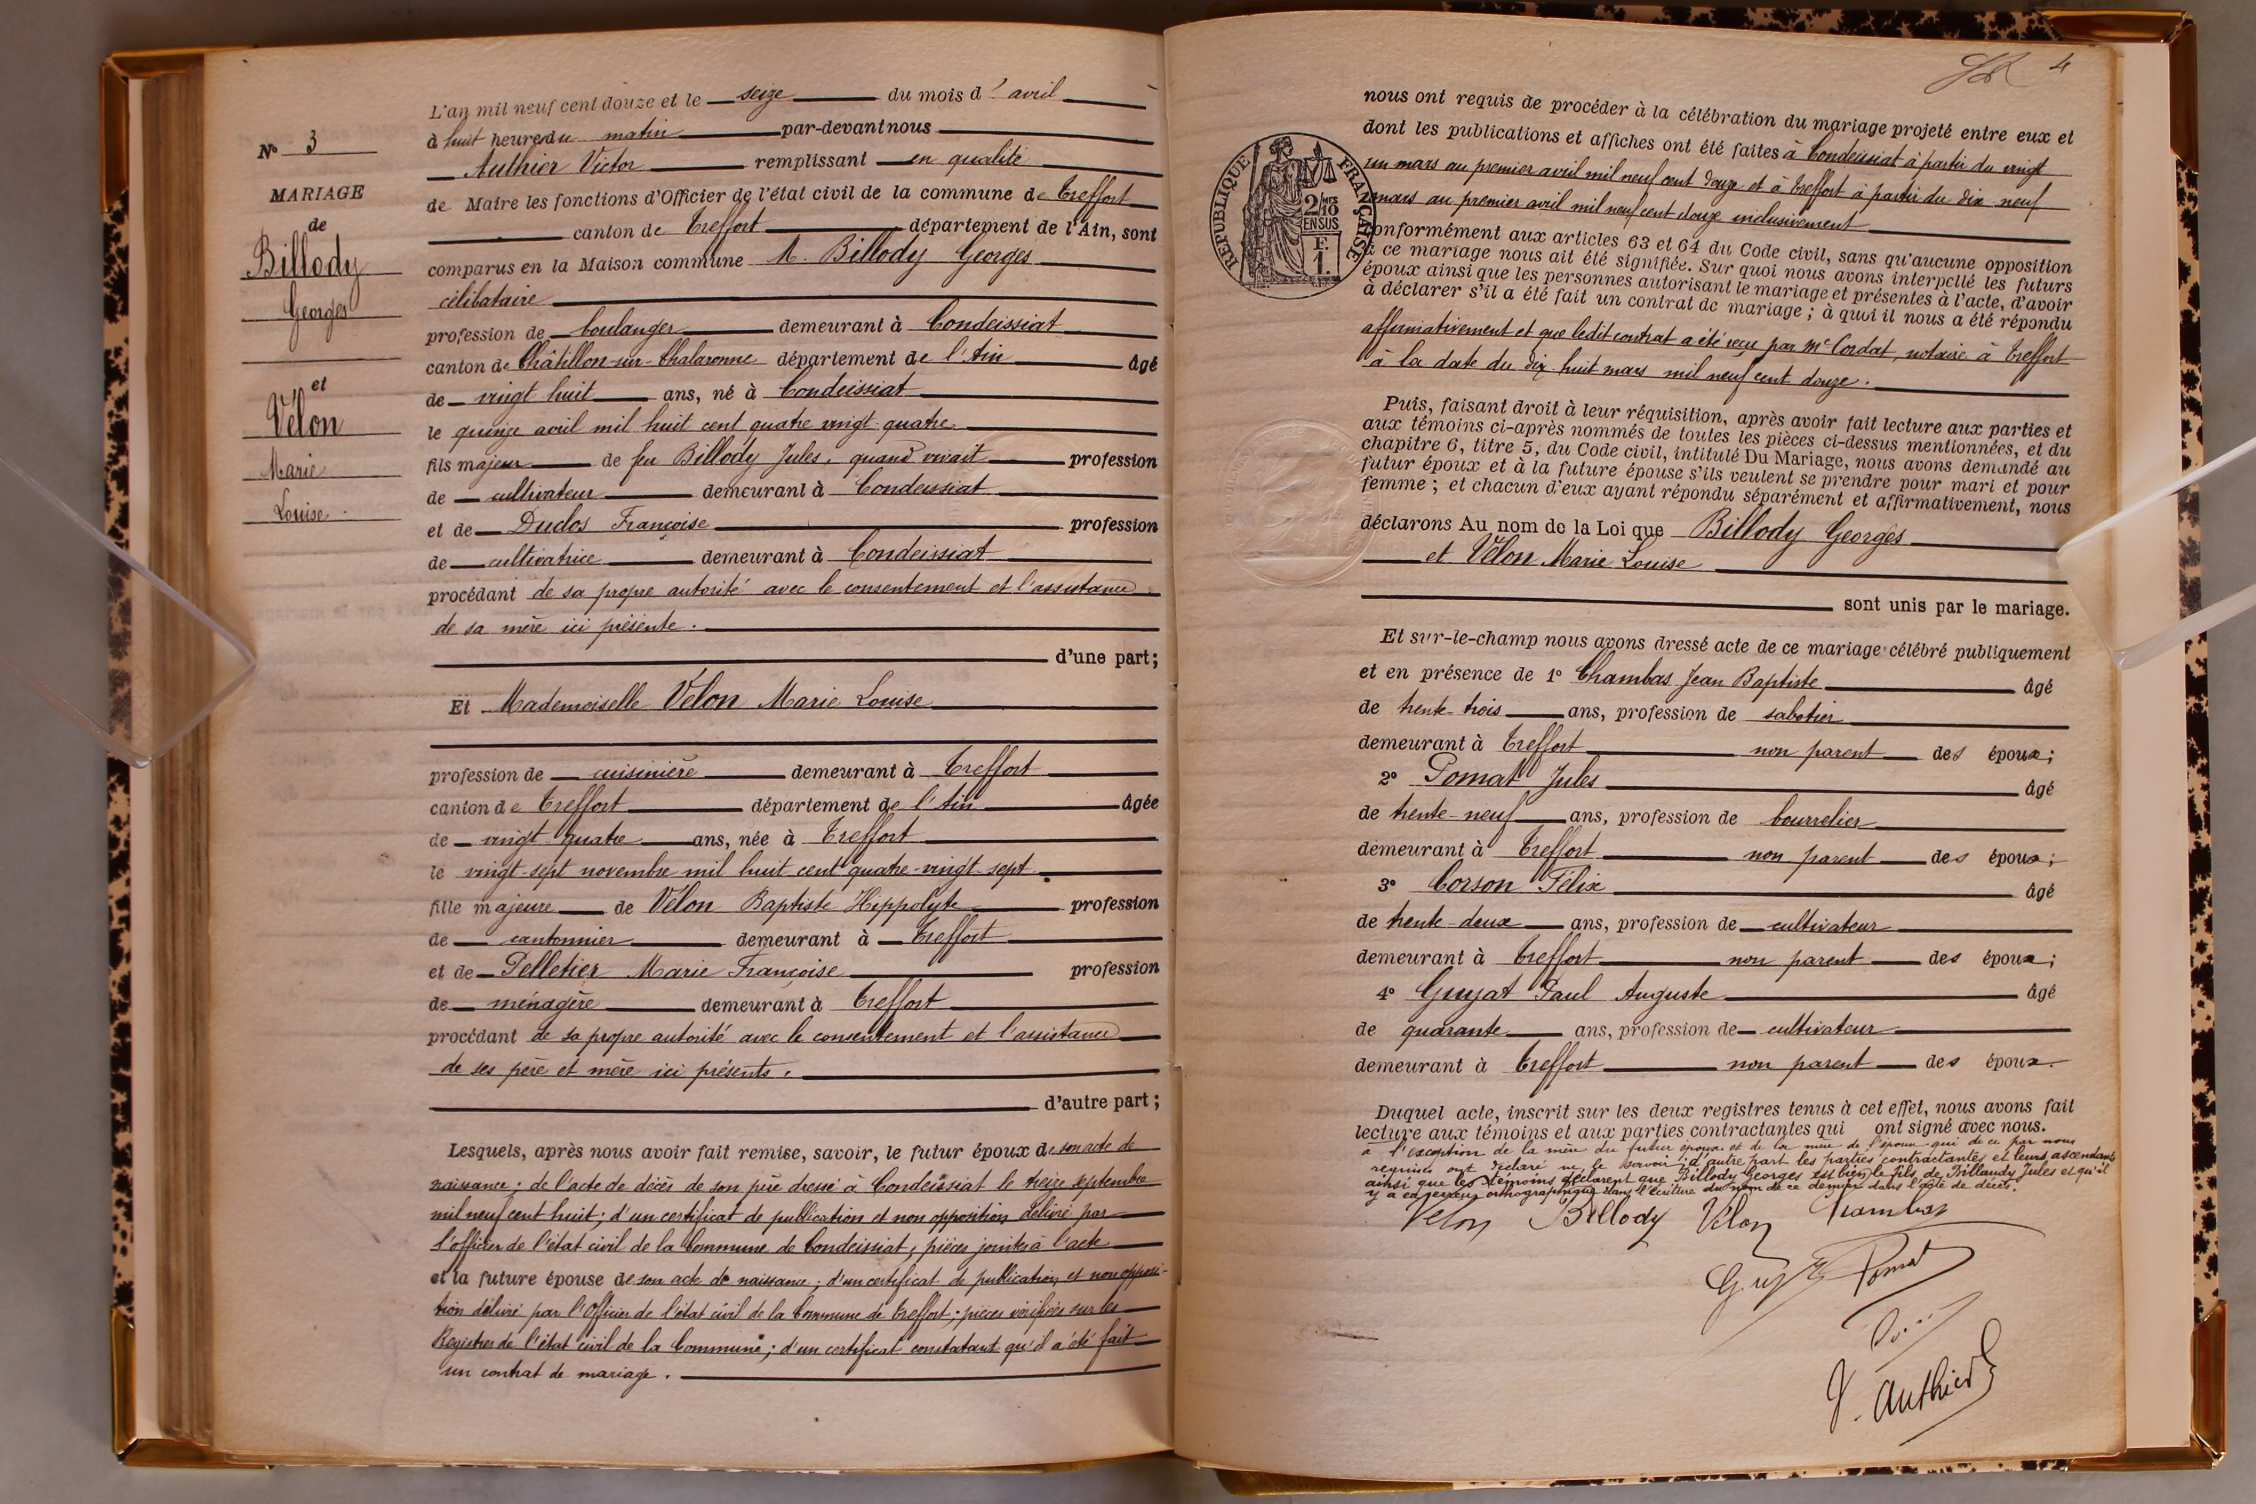 N° 3
MARIAGE
de
Billody
Georges
et
Vélon
Marie
Louise
L'an mil neuf cent douze et le seize du mois d'avril
à huit heures du matin par-devant nous
Authier Victor remplissant en qualité
de Maire les fonctions d'Officier de l'état civil de la commune de Treffort
canton de Treffort département de l'Ain, sont
comparus en la Maison commune M. Billody Georges
célibataire
profession de boulanger demeurant à Condeissiat
canton de Châtillon-sur-Chalaronne département de l'Ain âgé
de vingt huit ans, né à Condeissiat
le quinze avril mil huit cent quatre vingt quatre
fils majeur de feu Billody Jules, quand vivait profession
de cultivateur demeurant à Condeissiat
et de Duclos Françoise profession
de cultivatrice demeurant à Condeissiat
procédant de sa propre autorité avec le consentement et l'assistance
de sa mère ici présente.
d'une part;
Et Mademoiselle Vélon Marie Louise
profession de cuisinière demeurant à Treffort
canton de Treffort département de l'Ain âgée
de vingt quatre ans, née à Treffort
le vingt-sept novembre mil huit cent quatre-vingt-sept
fille majeure de Vélon Baptiste Hippolyte profession
de cantonnier demeurant à Treffort
et de Pelletier Marie Françoise profession
de ménagère demeurant à Treffort
procédant de sa propre autorité avec le consentement et l'assistance
de ses père et mère ici présents.
d'autre part;
Lesquels, après nous avoir fait remise, savoir, le futur époux de son acte de
naissance; de l'acte de décès de son père dressé à Condeissiat le treize septembre
mil neuf cent huit; d'un certificat de publication et non opposition délivré par
l'officier de l'état civil de la Commune de Condeissiat, pièces jointes à l'acte
et la future épouse de son acte de naissance; d'un certificat de publication et non opposi-
tion délivré par l'Officier de l'état civil de la Commune de Treffort; pièces vérifiées sur les
Registres de l'état civil de la Commune; d'un certificat constatant qu'il a été fait
un contrat de mariage.
4
RÉPUBLIQUE FRANÇAISE
2/10 MES
EN SUS
F.
1.
nous ont requis de procéder à la célébration du mariage projeté entre eux et
dont les publications et affiches ont été faites à Condeissiat à partir du vingt
un mars au premier avril mil neuf cent douze et à Treffort à partir du dix neuf
mars au premier avril mil neuf cent douze inclusivement
conformément aux articles 63 et 64 du Code civil, sans qu'aucune opposition
à ce mariage nous ait été signifiée. Sur quoi nous avons interpellé les futurs
époux ainsi que les personnes autorisant le mariage et présentes à l'acte, d'avoir
à déclarer s'il a été fait un contrat de mariage; à quoi il nous a été répondu
affirmativement et que ledit contrat a été reçu par Me Cordat, notaire à Treffort
à la date du dix huit mars mil neuf cent douze.
Puis, faisant droit à leur réquisition, après avoir fait lecture aux parties et
aux témoins ci-après nommés de toutes les pièces ci-dessus mentionnées, et du
chapitre 6, titre 5, du Code civil, intitulé Du Mariage, nous avons demandé au
futur époux et à la future épouse s'ils veulent se prendre pour mari et pour
femme; et chacun d'eux ayant répondu séparément et affirmativement, nous
déclarons Au nom de la Loi que Billody Georges
et Vélon Marie Louise
sont unis par le mariage.
Et sur-le-champ nous avons dressé acte de ce mariage célébré publiquement
et en présence de 1° Chambas Jean Baptiste âgé
de trente-trois ans, profession de sabotier
demeurant à Treffort non parent des époux;
2° Pomat Jules âgé
de trente-neuf ans, profession de bourrelier
demeurant à Treffort non parent des époux;
3° Corson Félix âgé
de trente-deux ans, profession de cultivateur
demeurant à Treffort non parent des époux;
4° Guyat Paul Auguste âgé
de quarante ans, profession de cultivateur
demeurant à Treffort non parent des époux.
Duquel acte, inscrit sur les deux registres tenus à cet effet, nous avons fait
lecture aux témoins et aux parties contractantes qui ont signé avec nous.
à l'exception de la mère du futur époux et de la mère de l'épouse qui de ce par nous
requises ont déclaré ne le savoir; d'autre part les parties contractantes et leurs ascendants
ainsi que les témoins déclarent que Billody Georges est bien le fils de Billaudy Jules et qu'il
y a eu erreur orthographique dans l'écriture du nom de ce dernier dans l'acte de décès.
Vélon Billody Vélon Chambas
Guyat Pomat
V. Authier